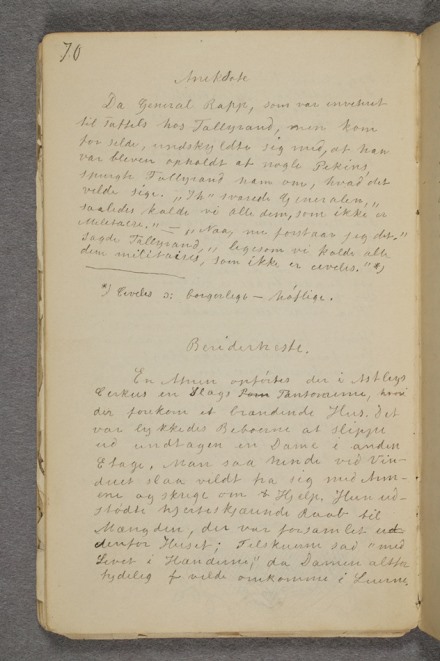 70
Anekdote
Da General Rapp, som var inviteret
til Taffels hos Tallyrand, men kom
for silde, undskyldte sig med, at han
var bleven opholdt af nogle Pekins,
spurgte Tallyrand ham om, hvad det
vilde sige. „Ih" svarede Generalen, „
saaledes kalde vi alle dem, som ikke er
Militaire." — „Naa, nu forstaar jeg det,"
sagde Tallyrand, „ligesom vi kalde alle
dem militaires, som ikke er civeles." *)
*) Civeles ɔ: borgerlige — høflige.
Beriderheste.
En Aften opførtes der i Astleys
Cirkus en Slags Pantomime, hvori
der forekom et brændende Hus. Det
var lykkedes Beboerne at slippe
ud undtagen en Dame i anden
Etage, Man saa hende ved Vin-
duet slaa vildt fra sig med Arm-
ene og skrige om Hjelp, Hun ud-
stødte hjerteskjærende Raab til
Mængden, der var forsamlet ud
denfor Huset; Tilskuerne sad "med
Livet i Hænderne," da Damen altfor
tydelig vilde omkomme i Luerne.